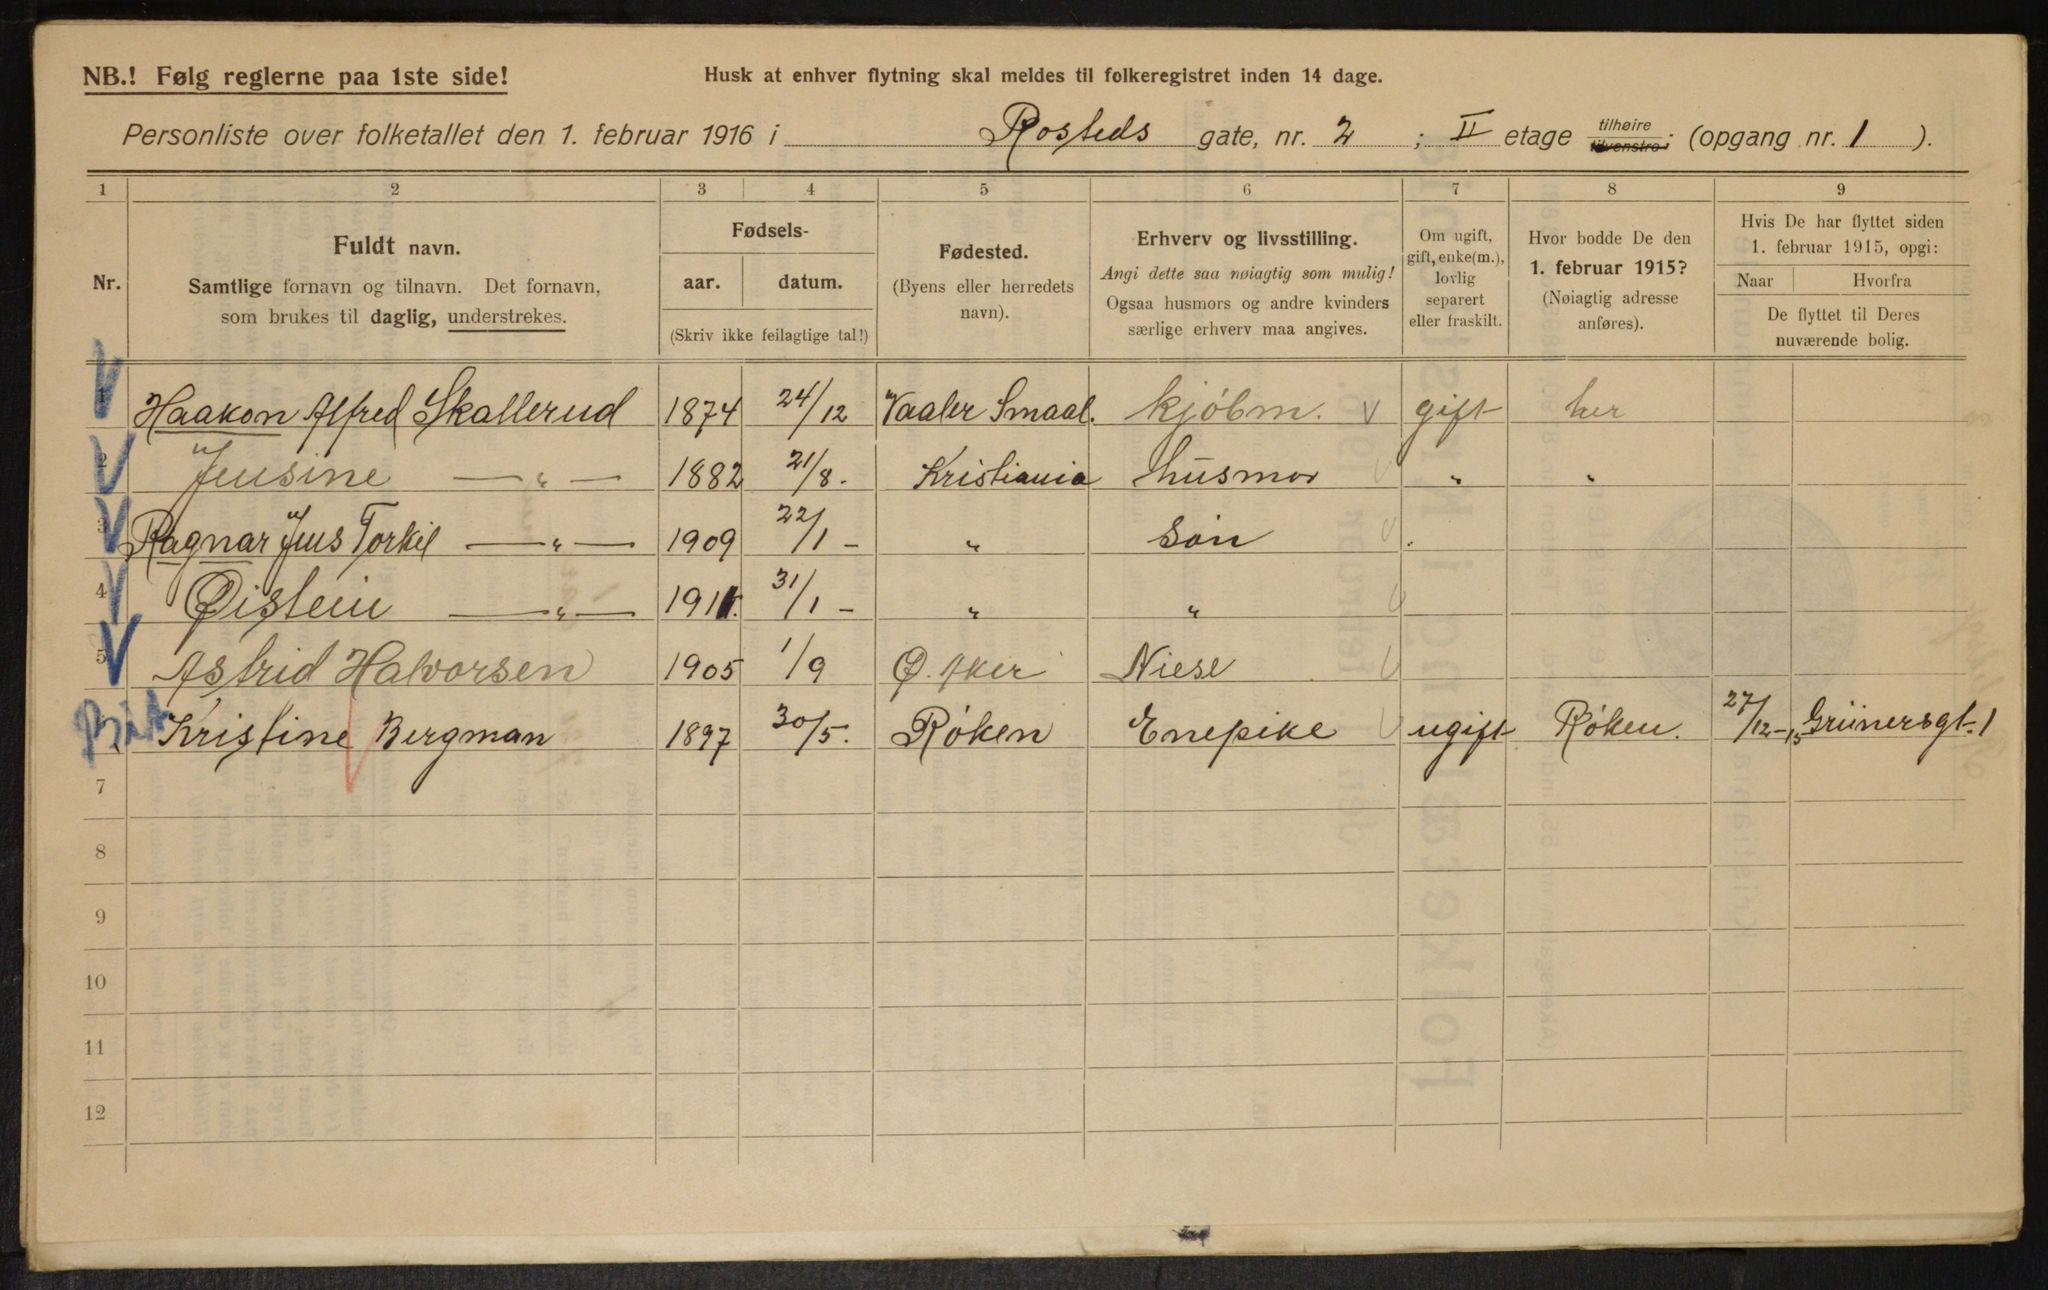 NB.! Følg reglerne paa 1ste side!
Husk at enhver flytning skal meldes til folkeregistret inden 14 dage.
Personliste over folketallet den 1. februar 1916 i Rosteds gate, nr. 2 ; II etage tilhøire tilvenstre; (opgang nr. 1 ).
1 2 3 4 5 6 7 8 9
Nr.
Fuldt navn.
Samtlige fornavn og tilnavn. Det fornavn,
som brukes til daglig, understrekes.
Fødsels-
aar. datum.
(Skriv ikke feilagtige tal!)
Fødested.
(Byens eller herredets
navn).
Erhverv og livsstilling.
Angi dette saa nøiagtig som mulig!
Ogsaa husmors og andre kvinders
særlige erhverv maa angives.
Om ugift,
gift, enke(m.),
lovlig
separert
eller fraskilt.
Hvor bodde De den
1. februar 1915?
(Nøiagtig adresse
anføres).
Hvis De har flyttet siden
1. februar 1915, opgi:
Naar Hvorfra
De flyttet til Deres
nuværende bolig.
1 Haakon Alfred Skallerud 1874 24/12 Vaaler Smaal. kjøbm. gift her
2 Jensine — „ — 1882 21/8. Kristiania husmor „ „
3 Ragnar Jens Torkil — „ — 1909 22/1 – „ Søn
4 Øistein — „ — 31/1 – „ „
5 Astrid Halvorsen 1905 1/9 Ø. Aker Niese
Kristine Bergman 1897 30/5. Røken Enepike ugift Røken. 27/12–15 Grünersgt. 1
7
8
9
10
11
12